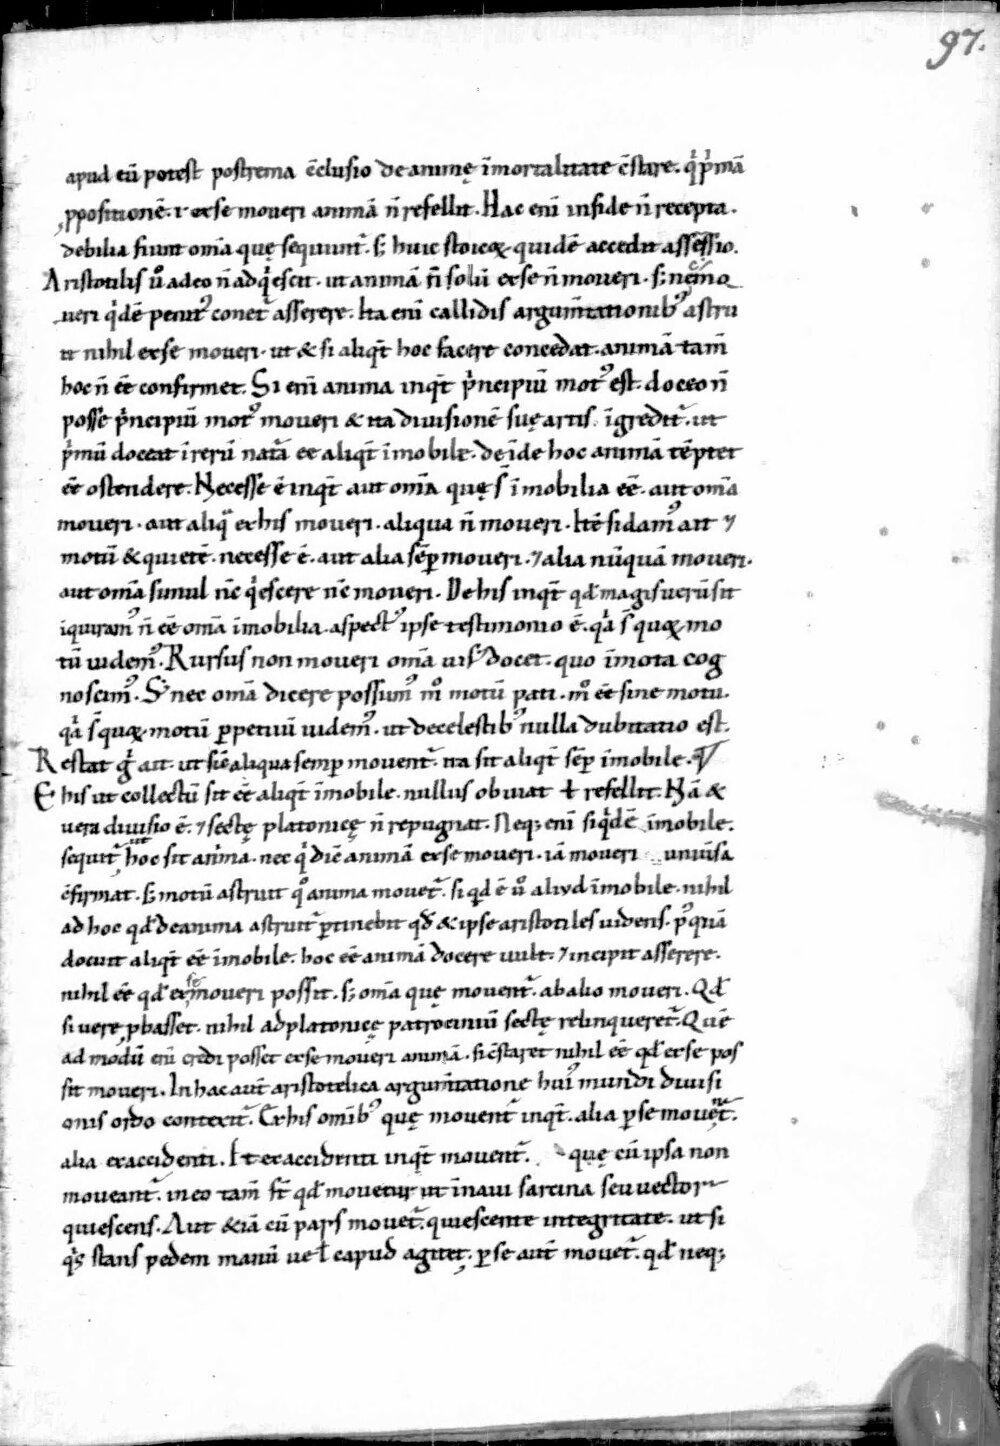 97.
apud eū potest postrema c̄clusio de animę īmortalitate c̄stare. qͥ pͥmā
ꝓpositionē. i. ex se moveri animā n̄ refellit. Hac eni͞ infide n̄ recepta.
debilia fiunt om͞a quę sequunt᷑. Sꝫ huic stoicoꝝ quidē accedit assęssio.
Aristotilis ů adeo n̄ adqͥescit. ut animā n̄ solū ex se n̄ moveri. sꝫ nec mo
veri qͥdē penitꝰ conet᷑ asserere. Ita eni͞ callidis argum̄tationibꝰ astru
it nihil ex se moveri. ut & si aliqͥt hoc facere concedat. animā tam̄
hoc n̄ eē confirmet. Si eni͞ anima inqͥt pͥncipiū motꝰ est. doceo n̄
posse pͥncipiū motꝰ moveri & ita divisionē suę artis īgredit᷑. ut
pͥmū doceat ī rerū nat᷑a eē aliqͥt īmobile. deīde hoc animā tēptet
eē ostendere. Necesse ē inqͥt aut om͞a quę s̄ īmobilia eē. aut om͞a
moveri. aut aliqᷓ ex his moveri. aliqua n̄ moveri. Itē si damꝰ ait ⁊
motū & quietē. necesse ē. aut alia sēp moveri. ⁊ alia nūquā moveri.
aut om͞a simul nc̄ qͥescere nc̄ moveri. De his inqͥt qđ magis verū sit
iquiramꝰ n̄ eē om͞a īmobilia. aspectꝰ ipse testimonio ē. qͥa s̄ quoꝝ mo
tū videmꝰ. Rursus non moveri om͞a visꝰ docet. quo īmota cog
noscimꝰ. Sꝫ nec om͞a dicere possumꝰ m̊ motū pati. m̊ eē sine motu.
qͥa s̄ quoꝝ motū ꝑpetuū videmꝰ. ut de celestibꝰ nulla dubitatio est.
Restat gͥ ait. ut sic̄ aliqua semꝑ movent᷑. ita sit aliqͥt sēꝑ īmobile. V
E his ut collectū sit eē aliqͥt īmobile. nullus obviat ł refellit. Nā &
vera divisio ē. ⁊ sectę platonicę n̄ repugnat. Neqꝫ eni͞ si qͥdē īmobile.
sequit᷑ ut hoc sit anīma. nec qͥ dic̄ animā ex se moveri. iā moveri univ̄sa
c̄firmat. Sꝫ motū astruit qͦ anima movet᷑. si qđ ē ů aliud īmobile. nihil
ad hoc qđ de anima astruit᷑ ꝑtinebit qđ & ipse aristotiles videns. pꝰquā
docuit aliqͥt eē īmobile. hoc eē animā docere vult. ⁊ incipit asserere.
nihil eē qđ ex se moveri possit. sꝫ om͞a quę movent᷑. ab alio moveri. Qđ
si vere ꝓbasset. nihil ad platonicę patrociniū sectę relinqueret᷑. Quē
ad modū eni͞ credi posset ex se moveri animā. si c̄staret nihil eē qđ ex se pos
sit moveri. In hac aut̄ aristotelica argum̄tatione huiꝰ mundi divisi
onis ordo contexit᷑. Ex his omībꝰ quę movent᷑ inqͥt. alia ꝑ se movent᷑.
alia ex accidenti. Et ex accidenti inqͥt movent᷑. quę cū ipsa non
moveant᷑. in eo tam̄ s̄t qđ movetur ut ī navi sarcina seu vector
quiescens. Aut &iā cū pars movet᷑. quiescente integritate. ut si
qͥs stans pedem manū vel capud agitet. ꝑ se aut̄ movet᷑. qđ neqꝫ